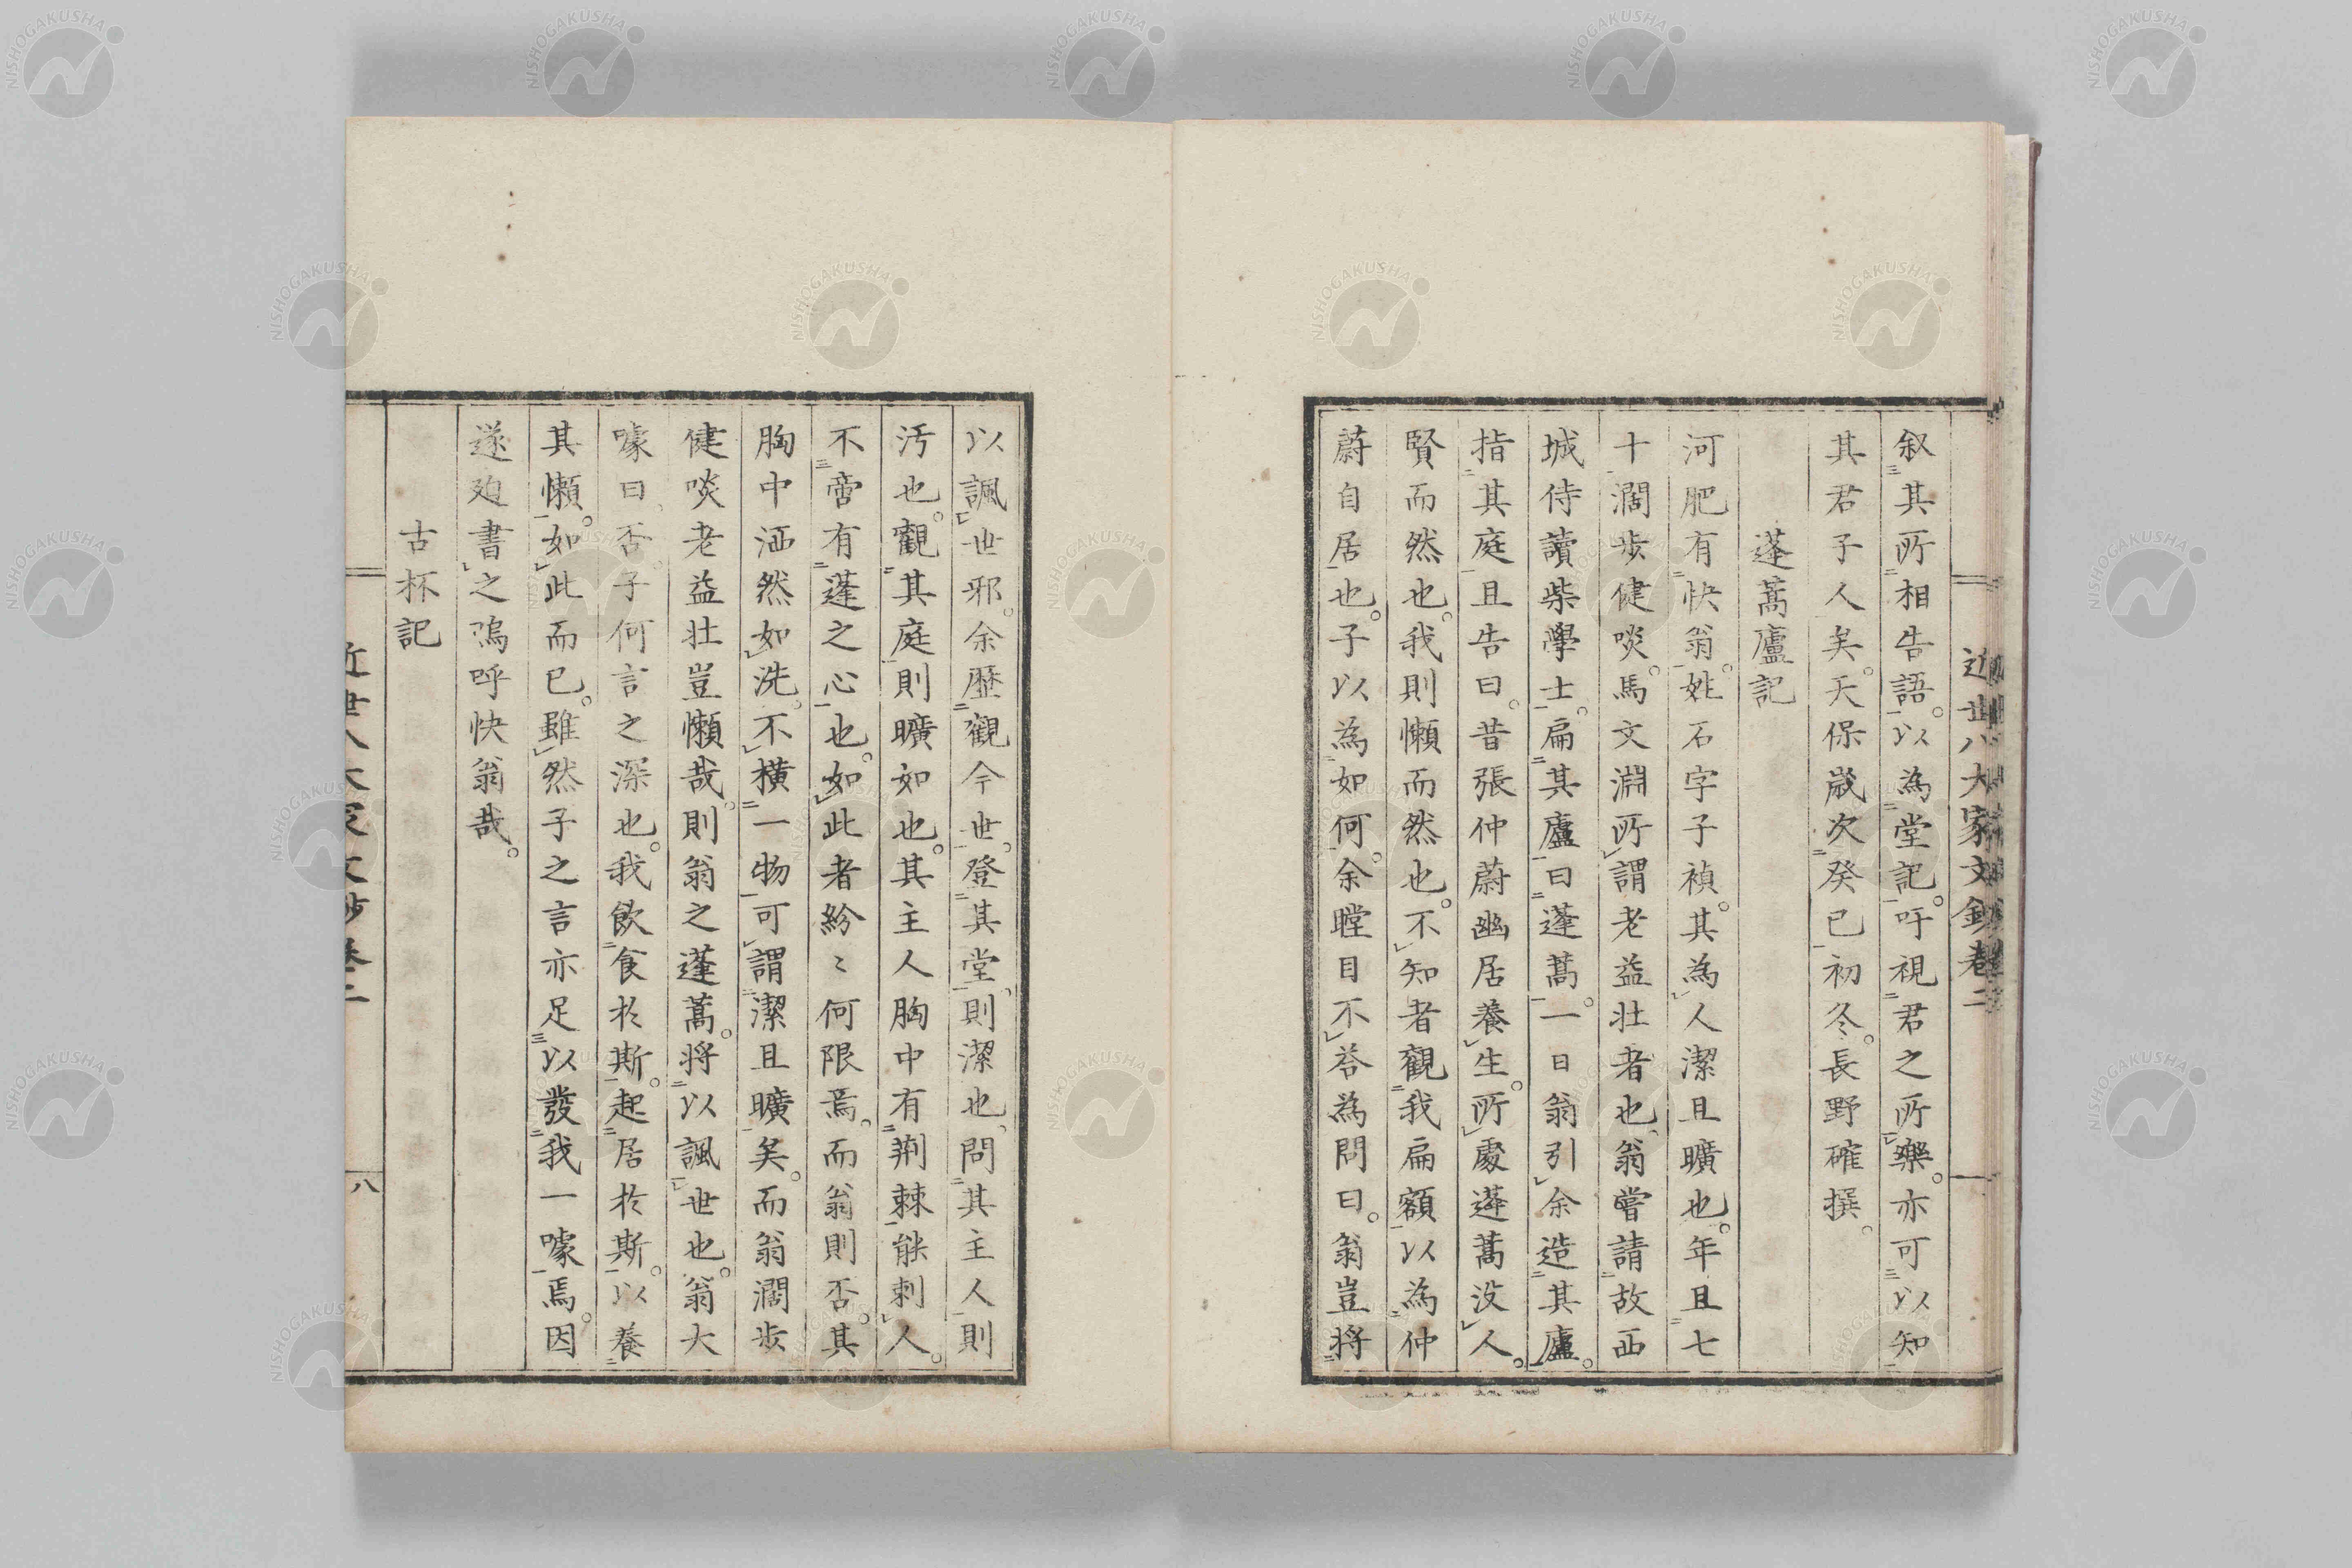 近世八大家文鈔卷二
叙其所相告語。以為堂記。吁視君之所樂。亦可以知
其君子人矣。天保歳次癸巳初冬。長野確撰。
蓬蒿廬記
河肥有快翁。姓石字子禎。其為人潔且曠也。年且七
十濶歩健啖。馬文淵所謂老益壯者也。翁嘗請故西
城侍讀柴學士。扁其廬曰蓬蒿。一日翁引余造其廬。
指其庭且告曰。昔張仲蔚幽居養生。所處蓬蒿没人。
賢而然也。我則懶而然也。不知者觀我扁額以為仲
蔚自居也。子以為如何。余瞠目不答為問曰。翁豈將
以諷世邪。余歴觀今世。登其堂則潔也。問其主人則
汚也。觀其庭則曠如也。其主人胸中有荆棘能刺人。
不啻有蓬之心也。如此者紛〻何限焉。而翁則否。其
胸中洒然如洗。不横一物可謂潔且曠矣。而翁濶歩
健啖老益壯豈懶哉。則翁之蓬蒿。將以諷世也。翁大
噱曰。否。子何言之深也。我飲食於斯。起居於斯。以養
其懶。如此而已。雖然子之言亦足以發我一噱焉。因
遂廹書之。嗚呼快翁哉。
古杯記
近世八大家文鈔卷二
八
NISHOGAKUSHA